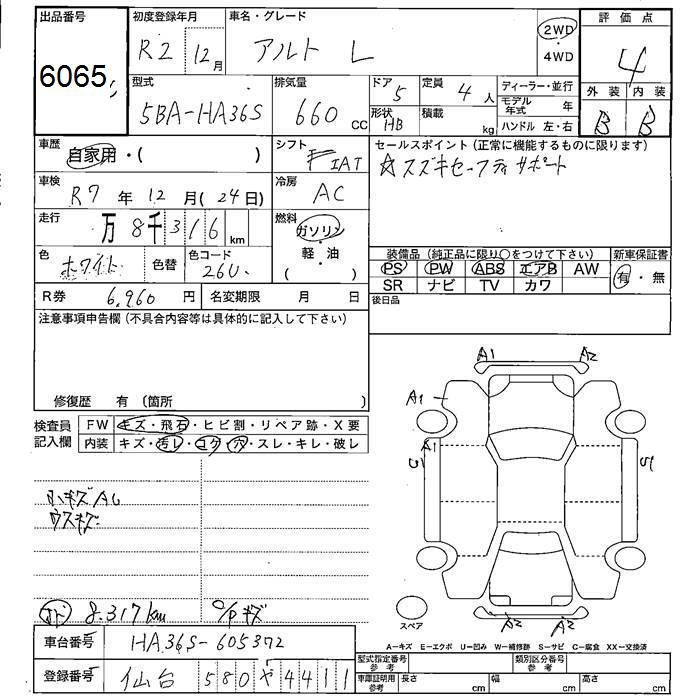 出品番号
6065
初度登録年月
R2 12月
車名・グレード
アルト L
2WD
・
4WD
評価点
4
外装 内装
B B
型式
5BA-HA36S
排気量
660 cc
ドア
5
形状
HB
定員
4 人
積載
kg
ディーラー・並行
モデル年式 年
ハンドル 左・右
車歴
自家用・( )
シフト
F IAT
セールスポイント(正常に機能するものに限ります)
☆スズキセーフティサポート
車検
R7 年 12 月 (24日)
冷房
AC
走行
万 8千 3 1 6 km
燃料
ガソリン
・
軽・油
( )
色
ホワイト
色替
色コード
26U
装備品(純正品に限り○をつけて下さい)
PS PW ABS エアB AW
SR ナビ TV カワ
新車保証書
有・無
R券 6,960 円
名変期限 月 日
後日品
注意事項申告欄(不具合内容等は具体的に記入して下さい)
修復歴 有(箇所 )
検査員記入欄
FW キズ・飛石・ヒビ割・リペア跡・X要
内装 キズ・汚レ・コゲ・穴・スレ・キレ・破レ
A1 A2
A1
A1
小キズAU
ウスキズ
8.317km
キズ
A2 A2
スペア
A-キズ E-エクボ U-凹み W-補修跡 S-サビ C-腐食 XX-交換済
車台番号 HA36S-605372
登録番号 仙台 580 や 4411
型式指定番号 参考
類別区分番号 参考
車庫証明用 参考
長さ cm
幅 cm
高さ cm